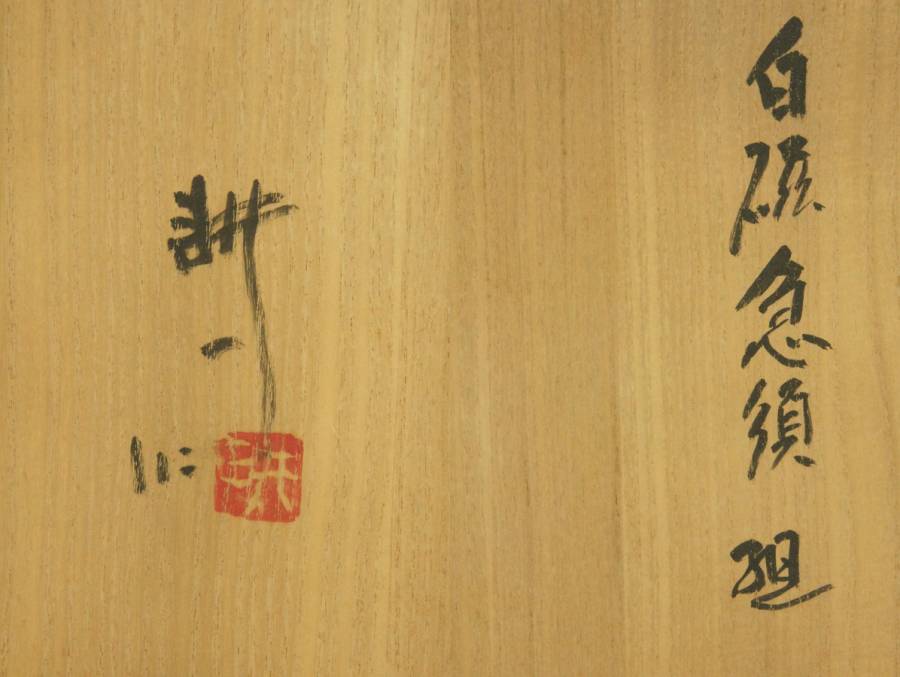 白磁急須 組
耕一